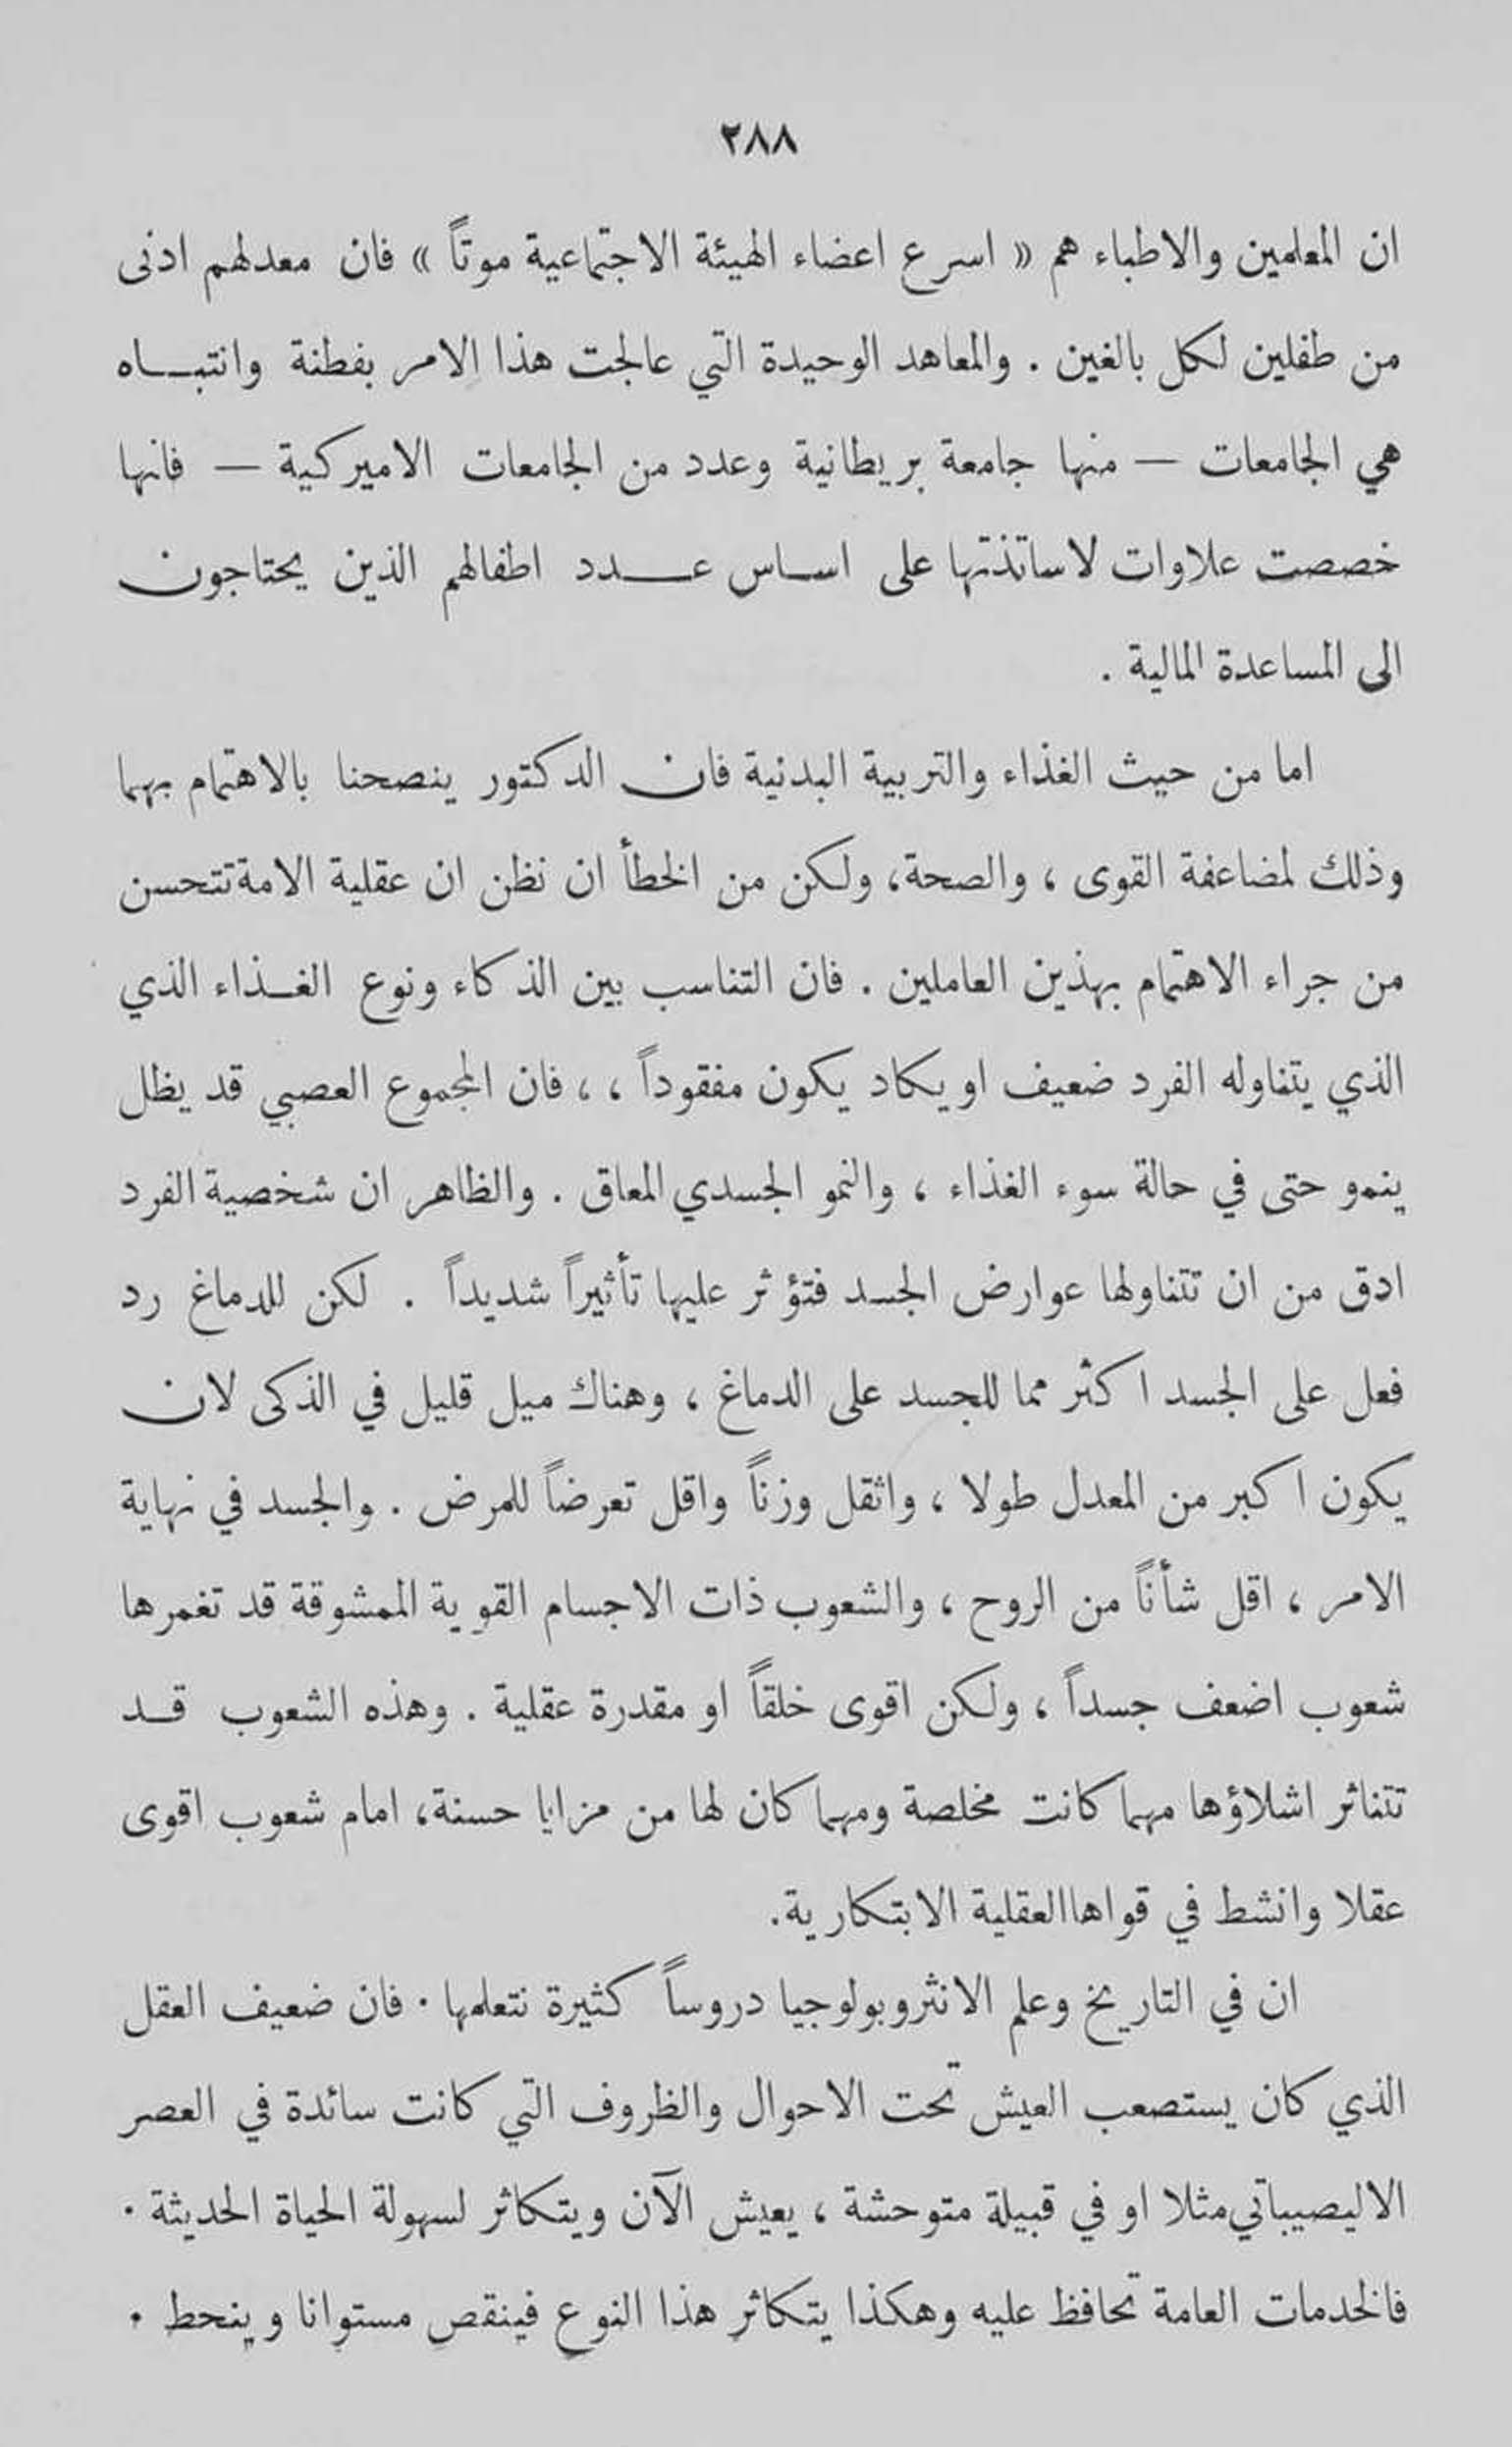 ٢٨٨
ان المعلمين والاطباء هم « اسرع اعضاء الهيئة الاجتماعية موتاً » فان معدلهم ادنى
من طفلين لكل بالغين . والمعاهد الوحيدة التي عالجت هذا الامر بفطنة وانتباه
هي الجامعات — منها جامعة بريطانية وعدد من الجامعات الاميركية — فانها
خصصت علاوات لاساتذتها على اساس عدد اطفالهم الذين يحتاجون
الى المساعدة المالية .
اما من حيث الغذاء والتربية البدنية فان الدكتور ينصحنا بالاهتمام بهما
وذلك لمضاعفة القوى ، والصحة، ولكن من الخطأ ان نظن ان عقلية الامة تتحسن
من جراء الاهتمام بهذين العاملين . فان التناسب بين الذكاء ونوع الغذاء الذي
الذي يتناوله الفرد ضعيف او يكاد يكون مفقوداً ، ، فان المجموع العصبي قد يظل
ينمو حتى في حالة سوء الغذاء ، والنمو الجسدي المعاق . والظاهر ان شخصية الفرد
ادق من ان تتناولها عوارض الجسد فتؤثر عليها تأثيراً شديداً . لكن للدماغ رد
فعل على الجسد اكثر مما للجسد على الدماغ ، وهناك ميل قليل في الذكى لان
يكون اكبر من المعدل طولا ، واثقل وزناً واقل تعرضاً للمرض . والجسد في نهاية
الامر ، اقل شأناً من الروح ، والشعوب ذات الاجسام القوية الممشوقة قد تغمرها
شعوب اضعف جسداً ، ولكن اقوى خلقاً او مقدرة عقلية . وهذه الشعوب قد
تتناثر اشلاؤها مهما كانت مخلصة ومهما كان لها من مزايا حسنة، امام شعوب اقوى
عقلا وانشط في قواها العقلية الابتكارية.
ان في التاريخ وعلم الانثروبولوجيا دروساً كثيرة نتعلمها . فان ضعيف العقل
الذي كان يستصعب العيش تحت الاحوال والظروف التي كانت سائدة في العصر
الاليصيباتي مثلا او في قبيلة متوحشة ، يعيش الآن ويتكاثر لسهولة الحياة الحديثة .
فالخدمات العامة تحافظ عليه وهكذا يتكاثر هذا النوع فينقص مستوانا وينحط .